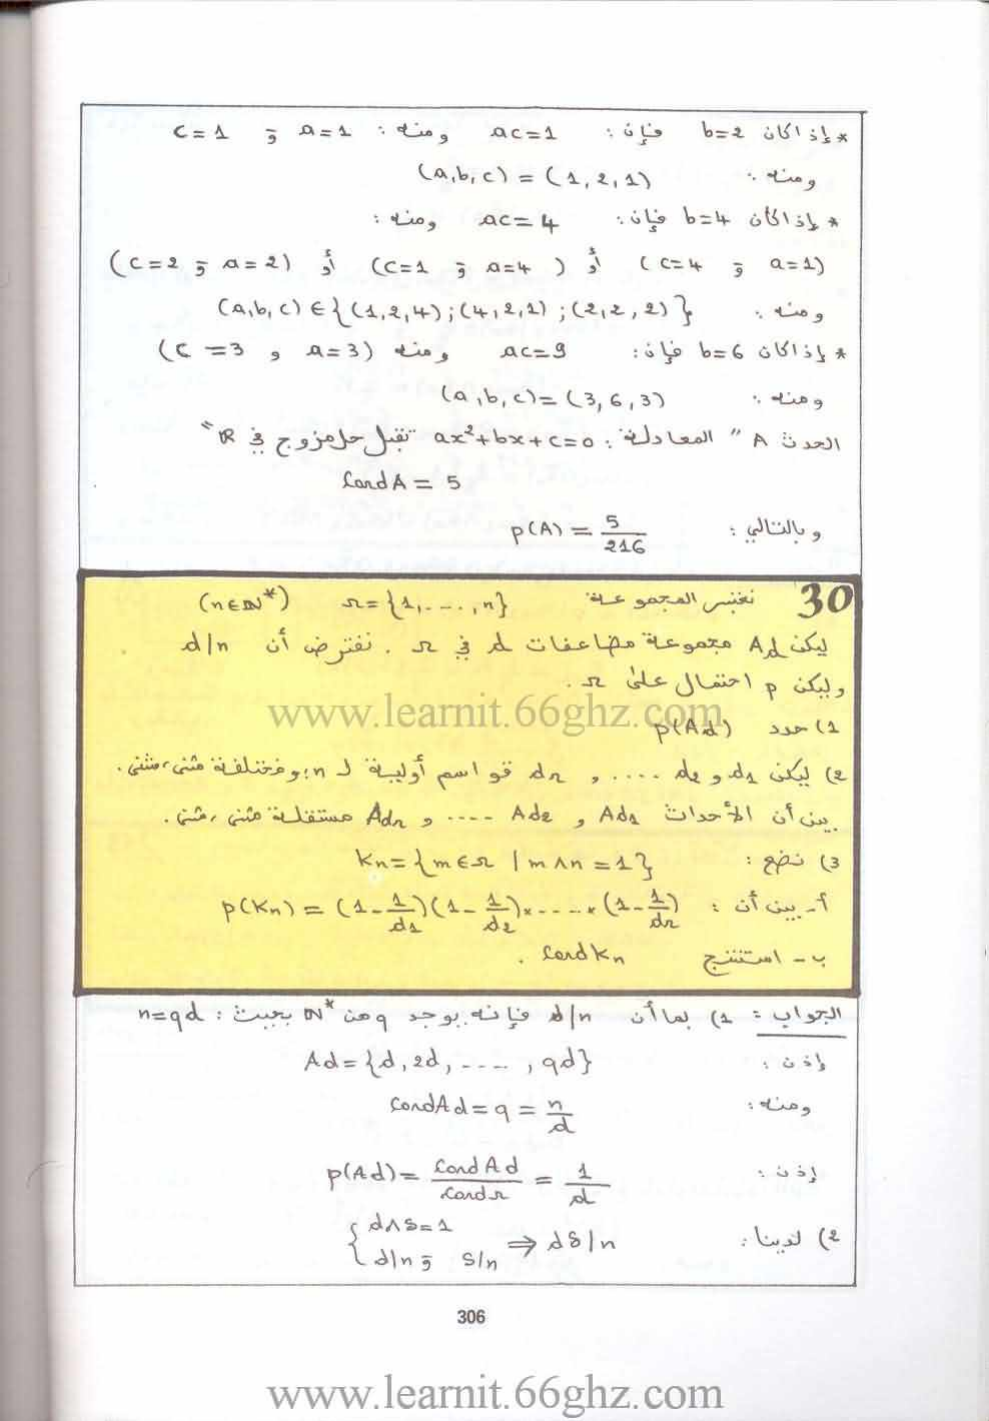 * إذا كان b=2 فإن: ac=1 ومنه: a=1 و c=1
ومنه: (a,b,c) = (1,2,1)
* إذا كان b=4 فإن: ac=4 ومنه:
(a=1 و c=4) أو (a=4 و c=1) أو (a=2 و c=2)
ومنه: (a,b,c) ∈ {(1,2,4);(4,2,1);(2,2,2)}
* إذا كان b=6 فإن: ac=9 ومنه (a=3 و c=3)
ومنه: (a,b,c)=(3,6,3)
الحدث A "المعادلة: ax²+bx+c=0 تقبل حل مزوج في ℝ"
Card A = 5
وبالتالي: p(A) = 5/216
30 نعتبر المجموعة Ω={1,....,n} (n∈ℕ*)
ليكن Ad مجموعة مضاعفات d في Ω. نفترض أن d/n
وليكن p احتمال على Ω.
www.learnit.66ghz.com
1) حدد p(Ad)
2) ليكن d1 و d2 .... و dr قواسم أولية لـ n؛ ومختلفة مثنى مثنى.
بين أن الأحداث Ad1 و Ad2 .... و Adr مستقلة مثنى مثنى.
3) نضع: Kn={m∈Ω | m∧n=1}
أ- بين أن: p(Kn) = (1-1/d1)(1-1/d2)×....×(1-1/dr)
ب- استنتج Card Kn.
الجواب: 1) بما أن d/n فإنه يوجد q من ℕ* بحيث: n=qd
إذن: Ad={d,2d,....,qd}
ومنه: Card Ad = q = n/d
إذن: p(Ad) = Card Ad/Card Ω = 1/d
2) لدينا: { d∧δ=1 ; d/n و δ/n ⇒ dδ/n
306
www.learnit.66ghz.com